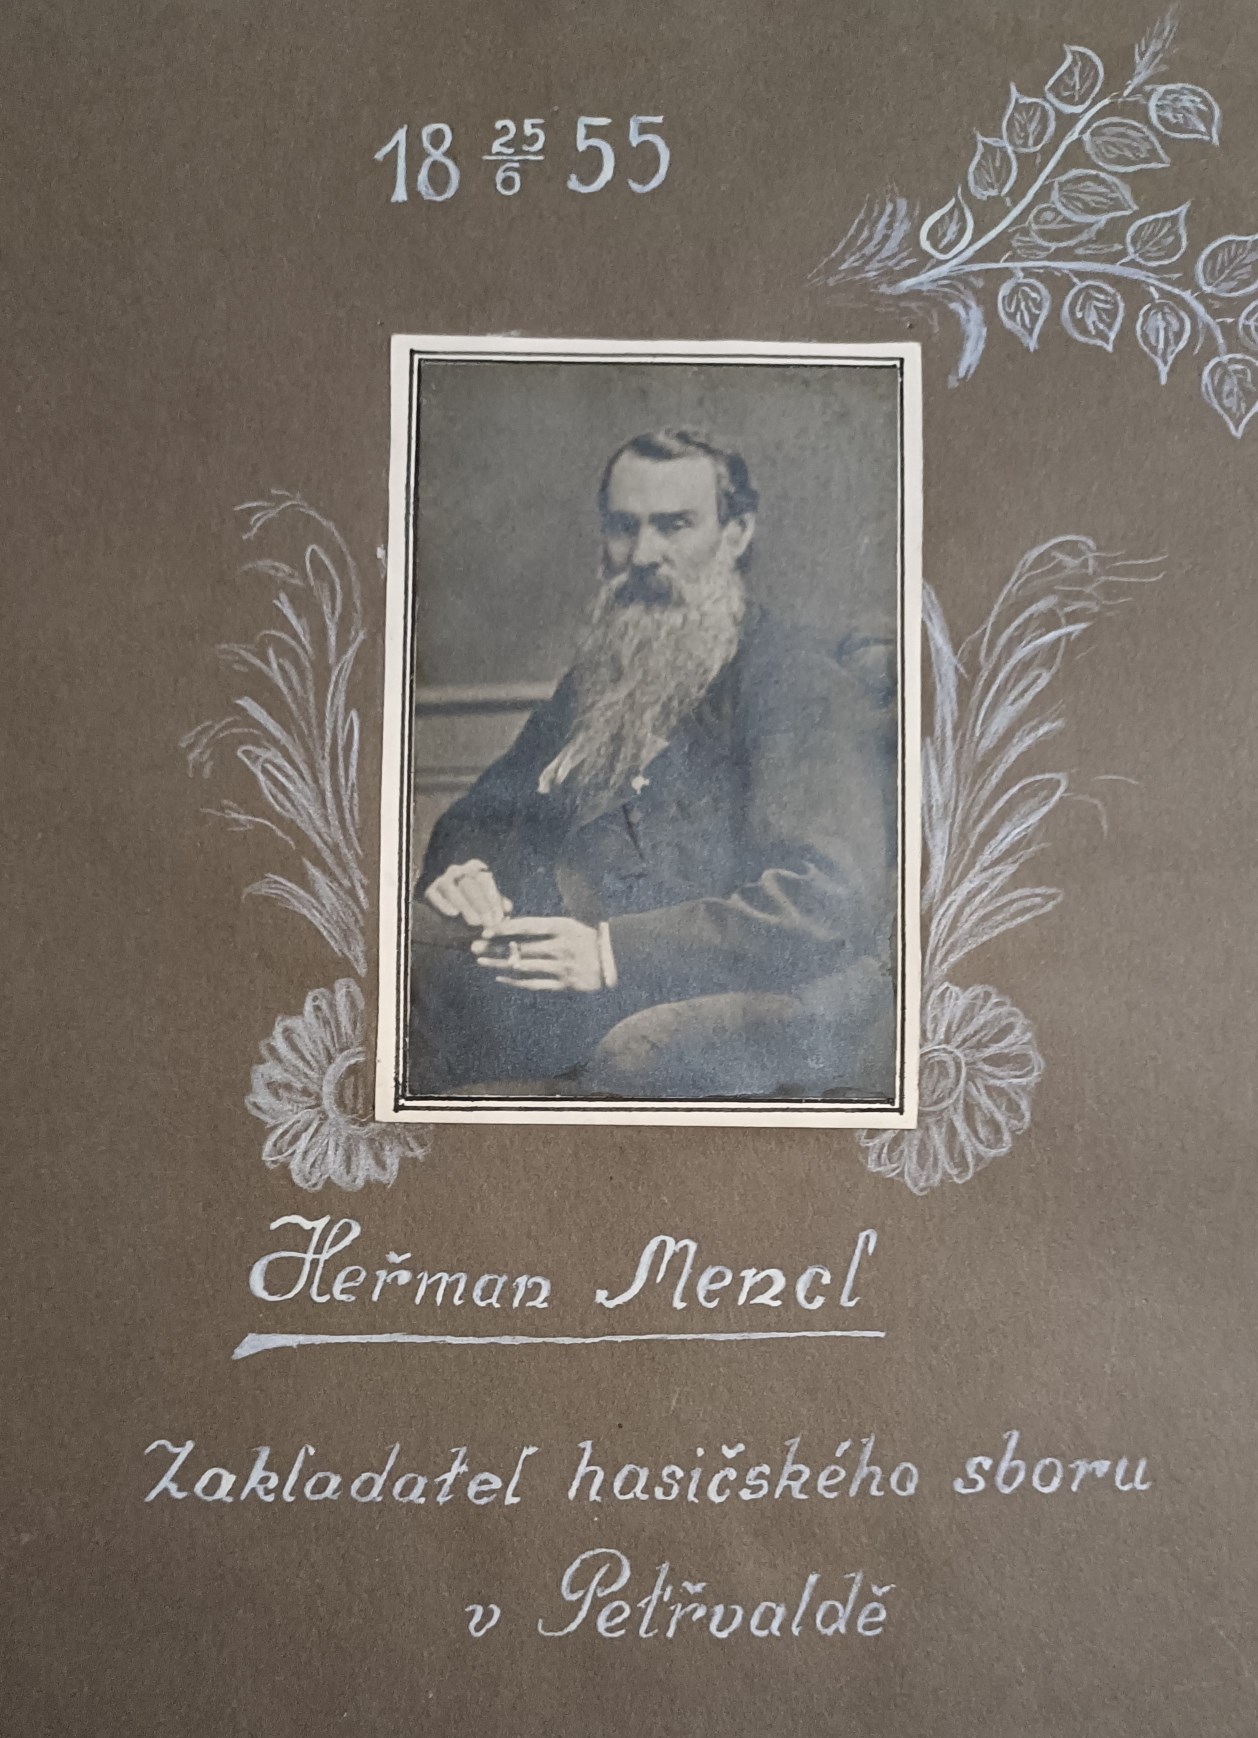 18 25/6 55
Heřman Mencl
Zakladatel hasičského sboru
v Petřvaldě